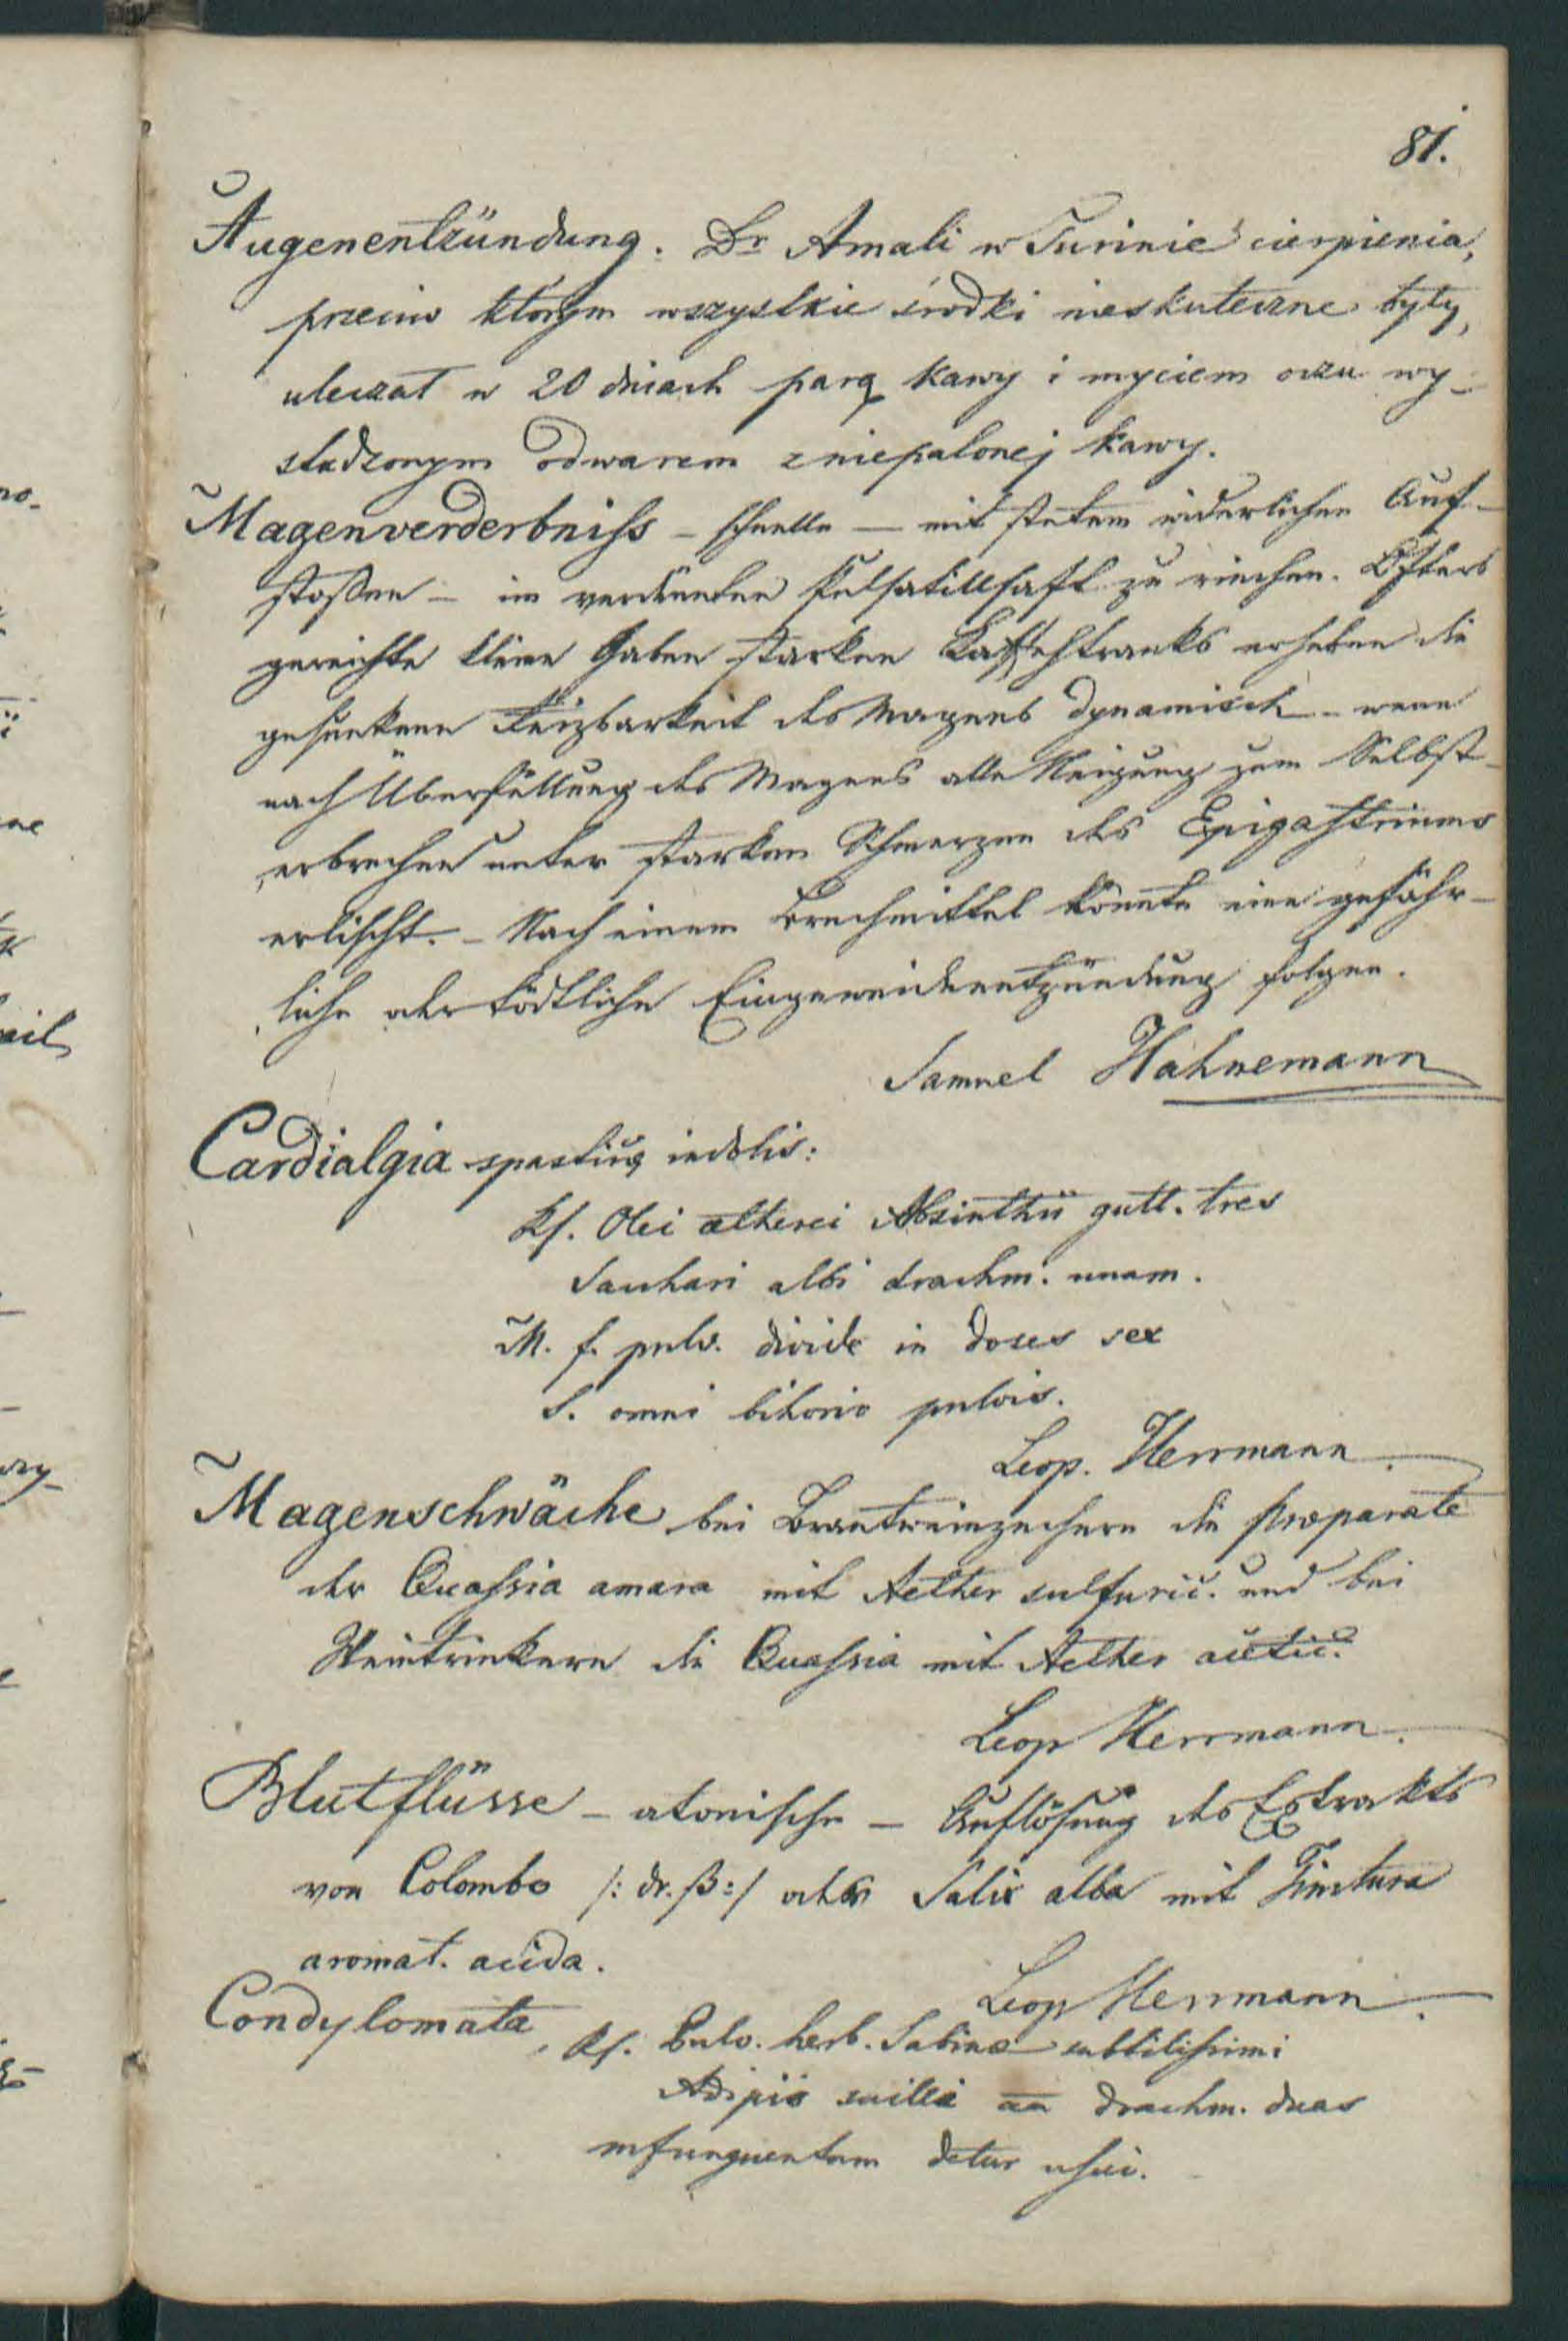 81.
Augenentzündung. Dr Amali w Turinie cierpienia,
przeciw którym wszystkie środki nieskuteczne były,
uleczał w 20 dniach parą kawy i myciem oczu wy-
studzonym odwarem z niepalonej kawy.
Magenverderbniss – schnelle – mit stetem widerlichen Auf-
stoßen – im verdünnten Pulsatillsaft zu riechen. Öfters
gereichte kleine Gaben starken Kaffehtranks erheben die
gesunkene Reizbarkeit des Magens dynamisch – wenn
nach Überfüllung des Magens alle Neigung zum Selbst-
erbrechen unter starken Schmerzen des Epigastriums
erlischt. – Nach einem Brechmittel könnte eine gefähr-
liche oder tödtliche Eingeweideentzündung folgen.
Samuel Hahnemann
Cardialgia indolis:
Rf. Olei aetherei Absinthii gutt. tres
Sacchari albi drachm. unam.
M. f. pulv. divide in doses sex
S. omni bihorio pulvis.
Leop. Herrmann.
Magenschwäche bei Brantweinzechern die Præparate
der Quassia amara mit Aether sulfuric. und bei
Weintrinkern die Quassia mit Aether acetic.
Leop Herrmann.
Blutflüsse – atonische – Auflösung des Extrakts
von Colombo /: dr. ß :/ oder Salix alba mit Tinctura
aromat. acida.
Leop Herrmann.
Condylomata, Rf. Pulv. herb. Sabinæ subtilissimi
Adipis suilli aa drachm. duas
mf unguentum detur usui.